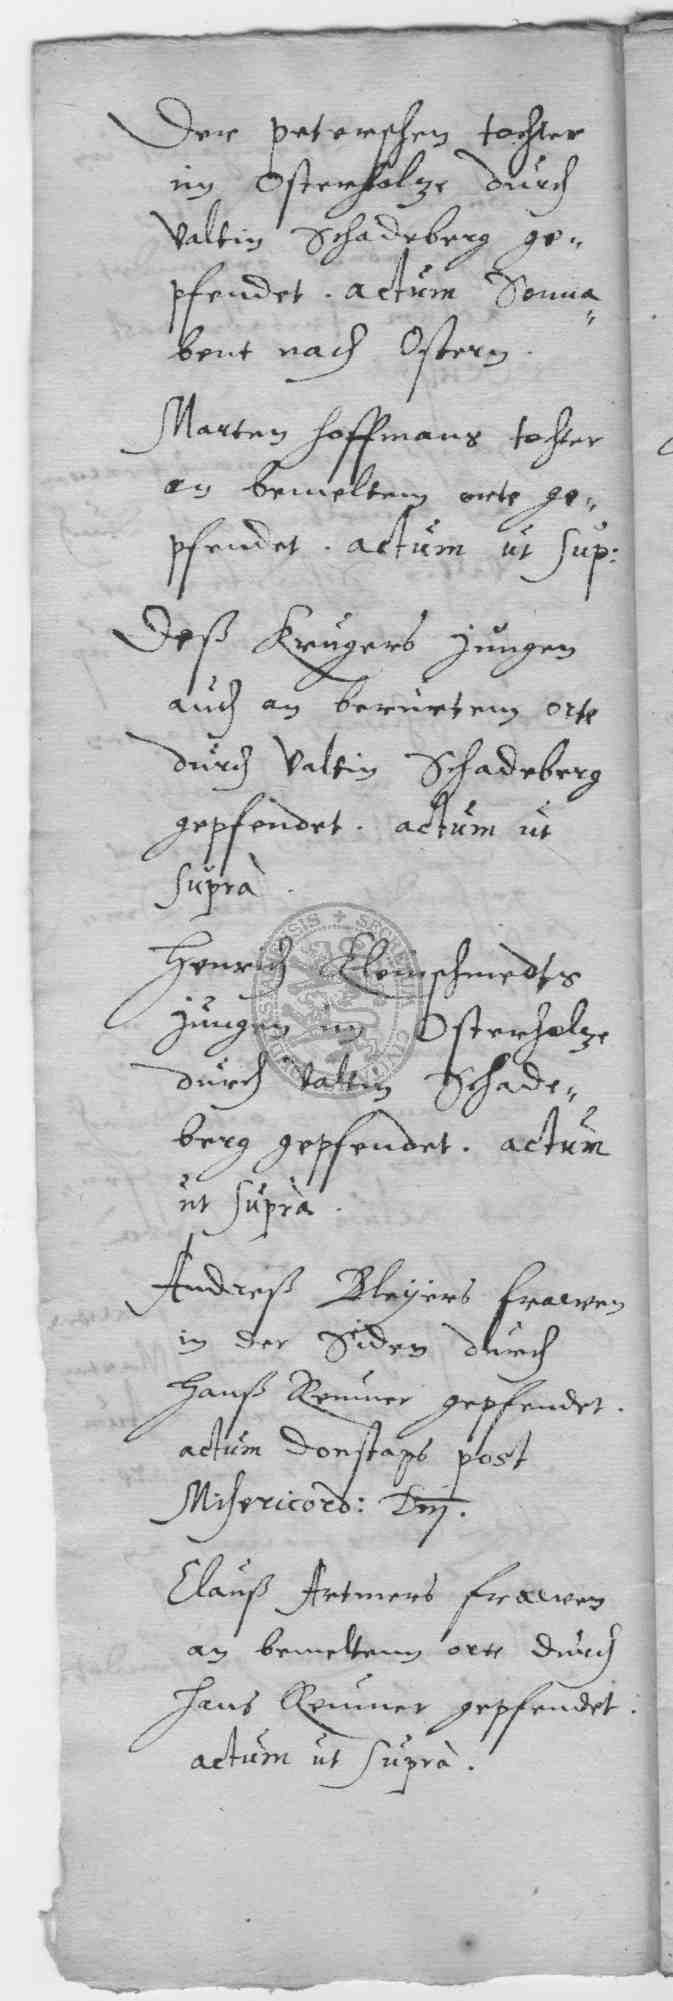 Der peterschen tochter
im Osterholtze durch
Valtin Schadeberg ge-
pfendet. actum Sonna-
bent nach Ostern.
Marten Hoffmans tochter
an bemeltem orte ge-
pfendet. actum ut sup:
Deß Krugers jungen
auch an berürtem orte
durch Valtin Schadeberg
gepfendet. actum ut
suprà.
Henrich Kleinschmedts
jungen im Osterholtze
durch Valtin Schade-
berg gepfendet. actum
ut suprà.
Andreß Bleyers frawen
in der Siden durch
Hanß Remmer gepfendet.
actum Donstags post
Misericord: Dnj.
Clauß Artmers frawen
an bemeltem orte durch
Hans Remmer gepfendet.
actum ut suprà.